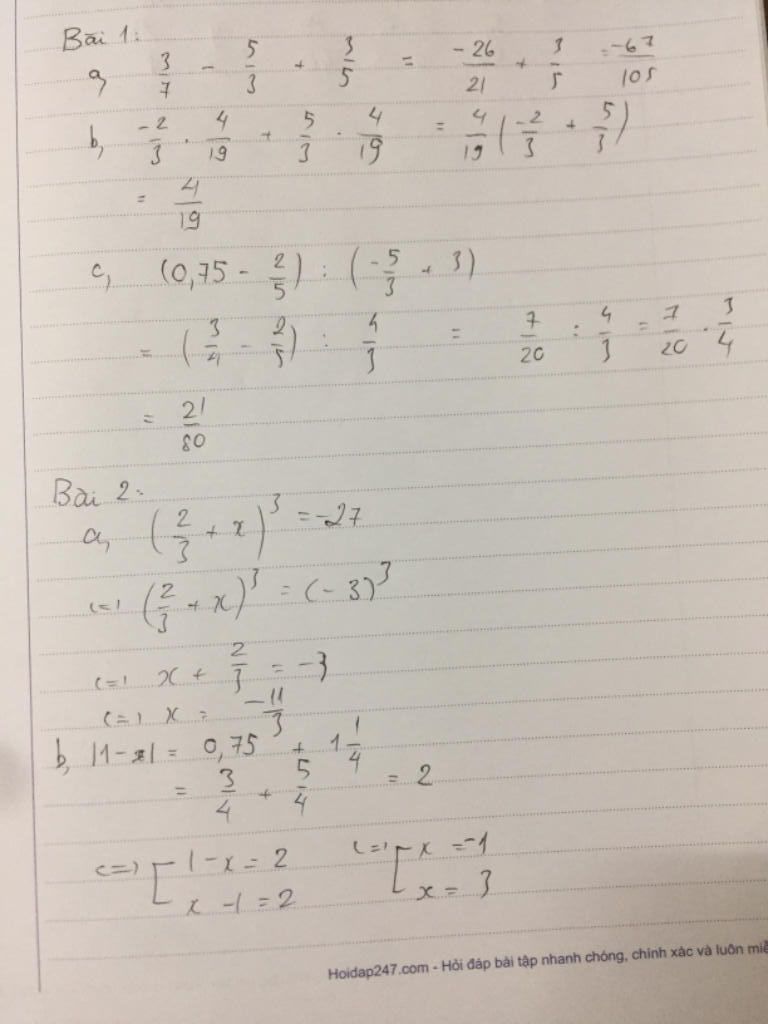 Bài 1:
a, 3/7 - 5/3 + 3/5 = -26/21 + 3/5 = -67/105
b, -2/3 . 4/19 + 5/3 . 4/19 = 4/19 (-2/3 + 5/3)
= 4/19
c, (0,75 - 2/5) : (-5/3 + 3)
= (3/4 - 2/5) : 4/3 = 7/20 : 4/3 = 7/20 . 3/4
= 21/80
Bài 2:
a, (2/3 + x)^3 = -27
<=> (2/3 + x)^3 = (-3)^3
<=> x + 2/3 = -3
<=> x = -11/3
b, |1-x| = 0,75 + 1 1/4
= 3/4 + 5/4 = 2
<=> [ 1-x = 2 <=> [ x = -1
x -1 = 2 x = 3
Hoidap247.com - Hỏi đáp bài tập nhanh chóng, chính xác và luôn miễ